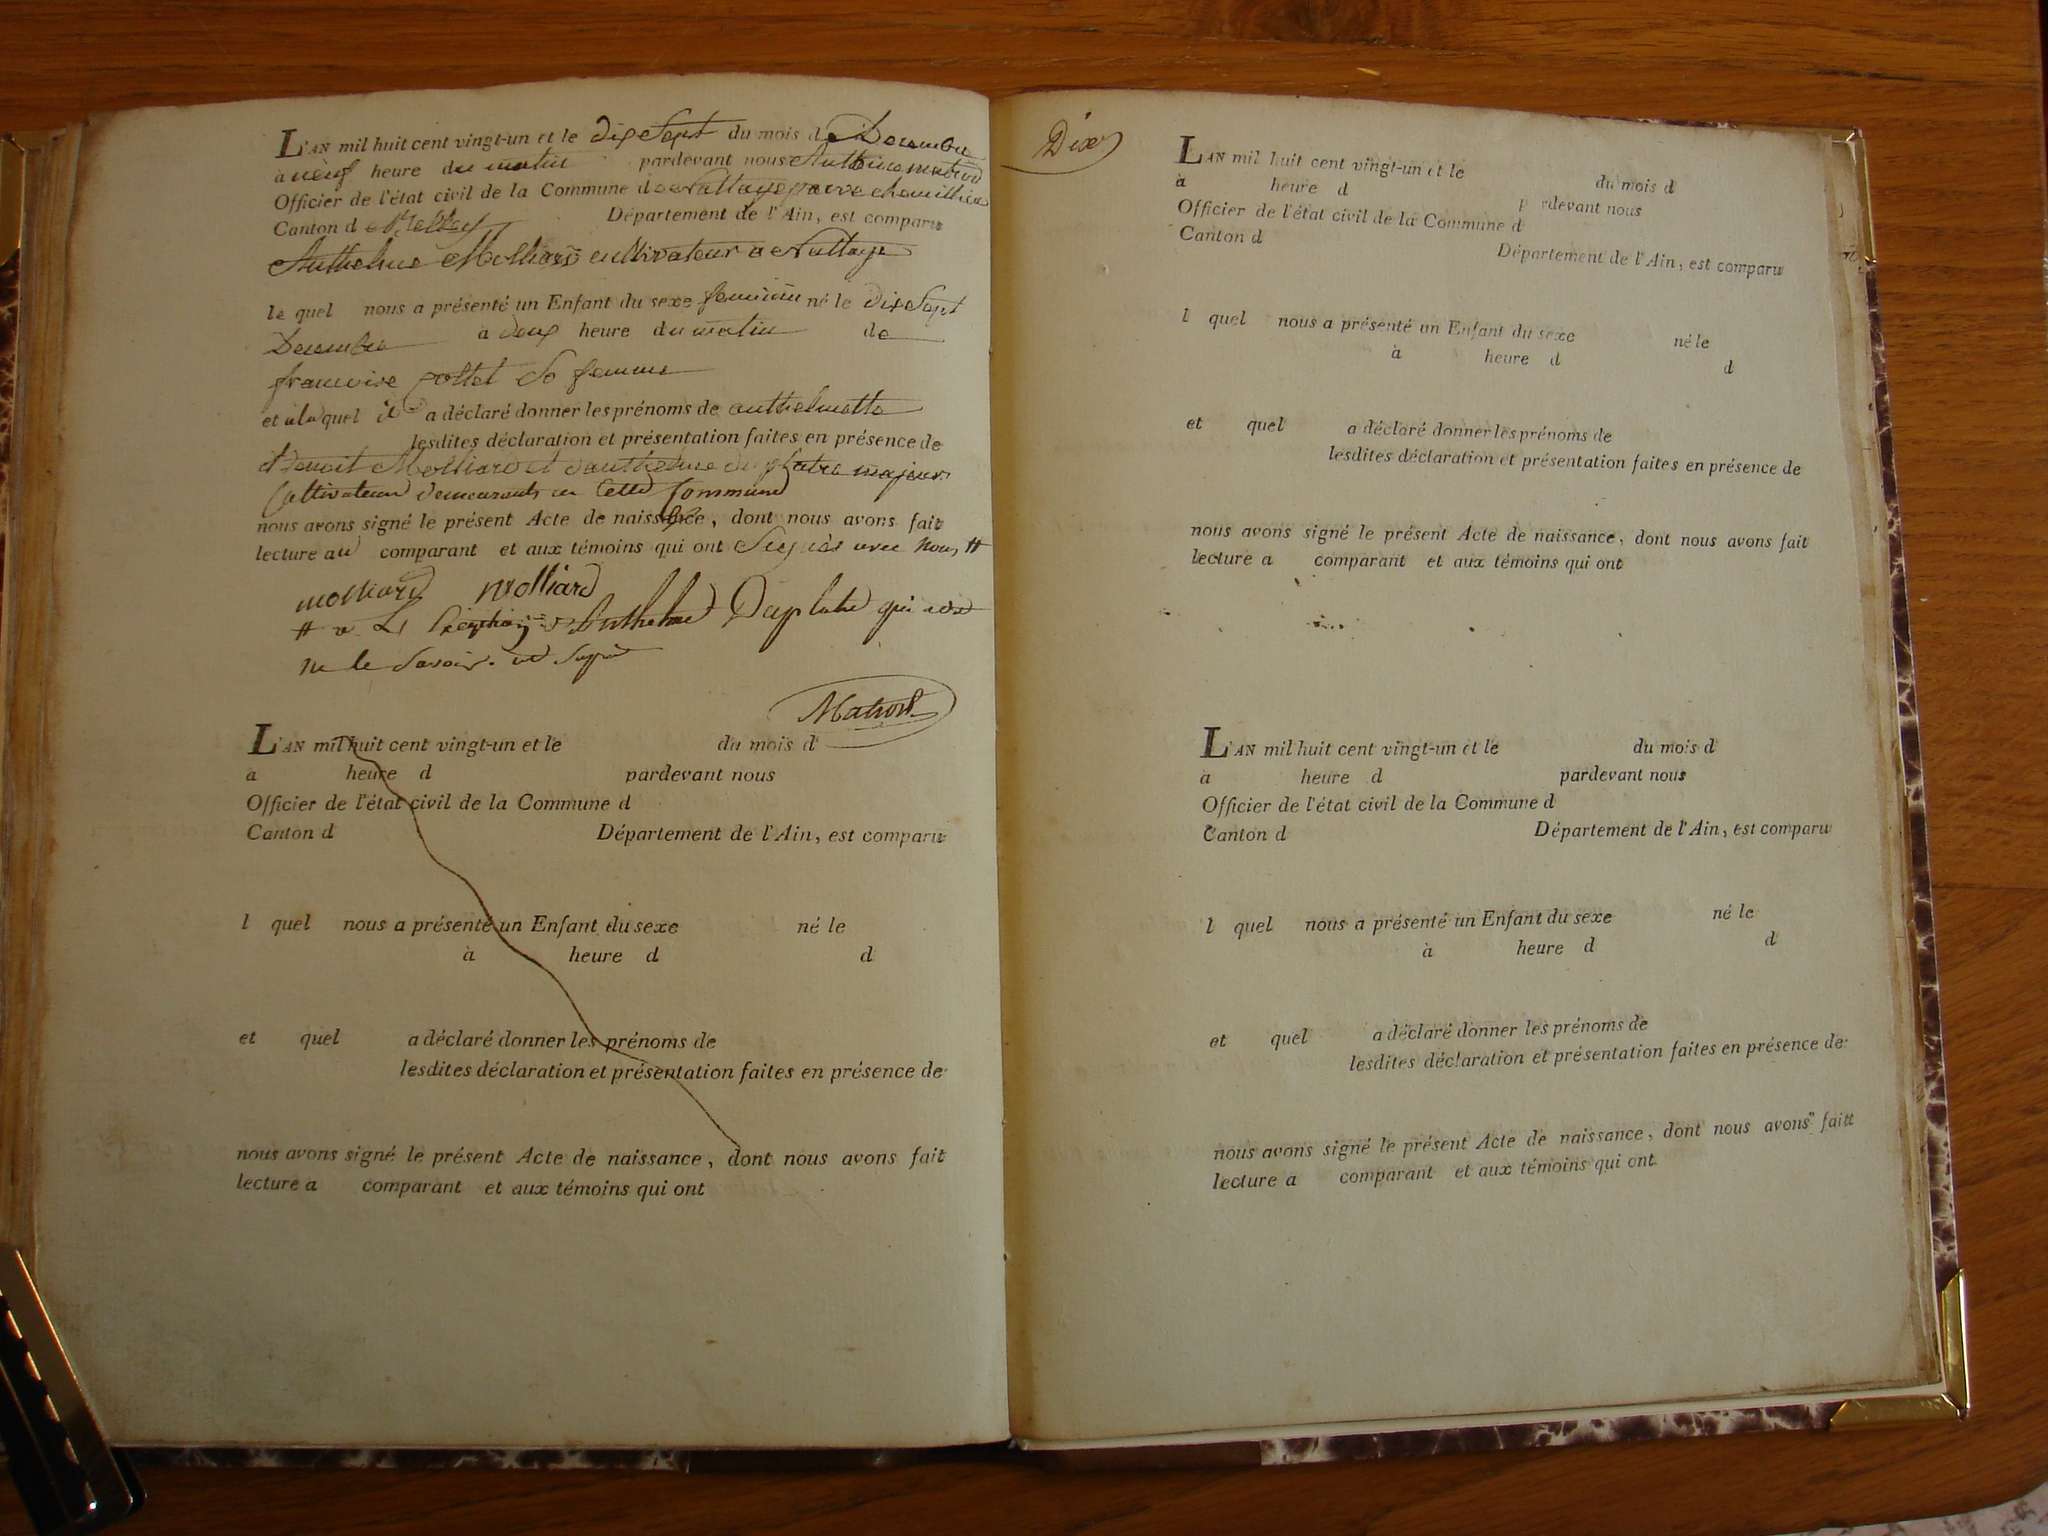 L'AN mil huit cent vingt-un et le dix Sept du mois de Decembre
a neuf heure du matin pardevant nous Anthoine matrod
Officier de l'état civil de la Commune de Nattage parve
Canton de Belley Département de l'Ain, est comparu
Anthelme Molliard cultivateur a Nattage
le quel nous a présenté un Enfant du sexe feminin né le dix Sept
Decembre a deux heure du matin de
francoise pottet Sa femme
et a la quel il a déclaré donner les prénoms de anthelmette
lesdites déclaration et présentation faites en présence de
Benoit Molliard et d'anthelme du platre majeurs
Cultivateurs demeurants en Cette Commune
nous avons signé le présent Acte de naissance, dont nous avons fait
lecture au comparant et aux témoins qui ont Signés avec Nous #
molliard Molliard
# a L'Exception d'Anthelme Duplatre qui
ne le Savoir.
Matrod
L'AN mil huit cent vingt-un et le du mois d
a heure d pardevant nous
Officier de l'état civil de la Commune d
Canton d Département de l'Ain, est comparu
l quel nous a présenté un Enfant du sexe né le
à heure d d
et quel a déclaré donner les prénoms de
lesdites déclaration et présentation faites en présence de
nous avons signé le présent Acte de naissance, dont nous avons fait
lecture a comparant et aux témoins qui ont
Dix
L'AN mil huit cent vingt-un et le du mois d
a heure d pardevant nous
Officier de l'état civil de la Commune d
Canton d Département de l'Ain, est comparu
l quel nous a présenté un Enfant du sexe né le
à heure d d
et quel a déclaré donner les prénoms de
lesdites déclaration et présentation faites en présence de
nous avons signé le présent Acte de naissance, dont nous avons fait
lecture a comparant et aux témoins qui ont
L'AN mil huit cent vingt-un et le du mois d
a heure d pardevant nous
Officier de l'état civil de la Commune d
Canton d Département de l'Ain, est comparu
l quel nous a présenté un Enfant du sexe né le
à heure d d
et quel a déclaré donner les prénoms de
lesdites déclaration et présentation faites en présence de
nous avons signé le présent Acte de naissance, dont nous avons fait
lecture a comparant et aux témoins qui ont